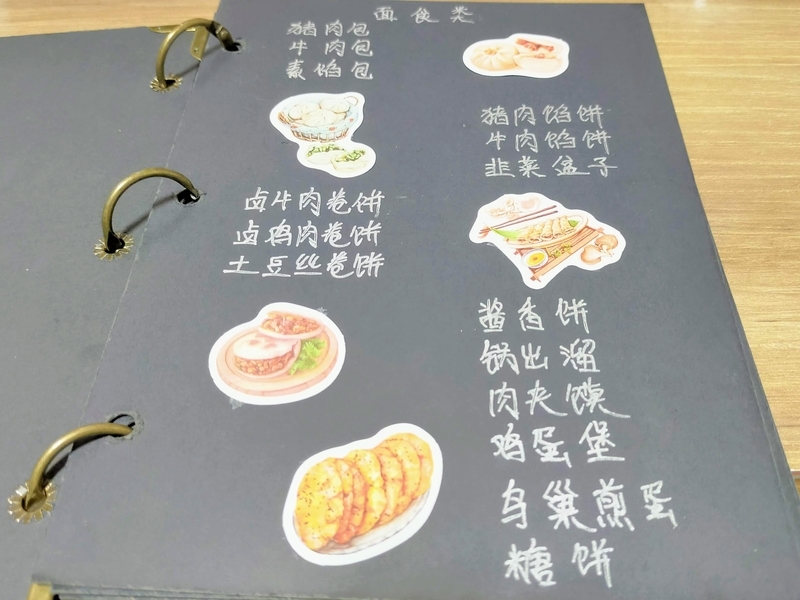 面食类
猪肉包
牛肉包
素馅包
卤牛肉卷饼
卤鸡肉卷饼
土豆丝卷饼
猪肉馅饼
牛肉馅饼
韭菜盒子
酱香饼
锅出溜
肉夹馍
鸡蛋堡
鸟巢煎蛋
糖饼